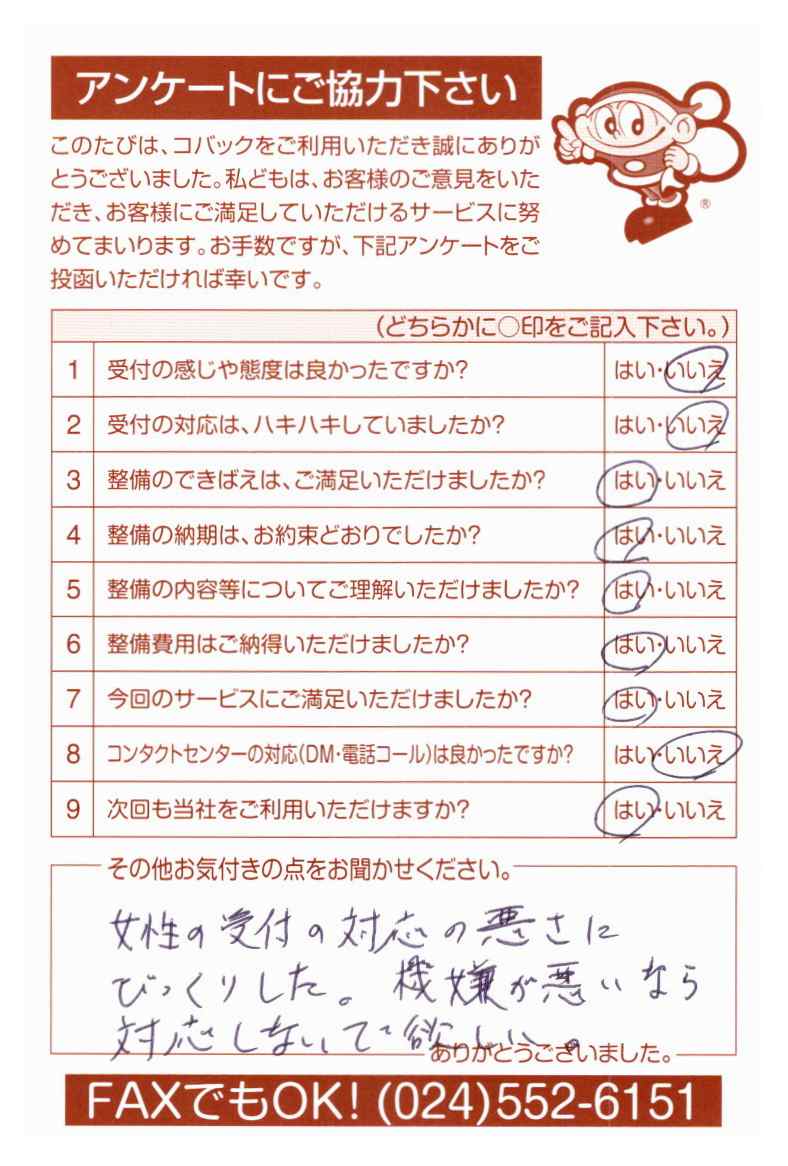 アンケートにご協力下さい
このたびは、コバックをご利用いただき誠にありが
とうございました。私どもは、お客様のご意見をいた
だき、お客様にご満足していただけるサービスに努
めてまいります。お手数ですが、下記アンケートをご
投函いただければ幸いです。
®
(どちらかに○印をご記入下さい。)
1 受付の感じや態度は良かったですか? はい・いいえ
2 受付の対応は、ハキハキしていましたか? はい・いいえ
3 整備のできばえは、ご満足いただけましたか? はい・いいえ
4 整備の納期は、お約束どおりでしたか? はい・いいえ
5 整備の内容等についてご理解いただけましたか? はい・いいえ
6 整備費用はご納得いただけましたか? はい・いいえ
7 今回のサービスにご満足いただけましたか? はい・いいえ
8 コンタクトセンターの対応(DM・電話コール)は良かったですか? はい・いいえ
9 次回も当社をご利用いただけますか? はい・いいえ
その他お気付きの点をお聞かせください。
女性の受付の対応の悪さに
びっくりした。機嫌が悪いなら
対応しないで欲しい。
ありがとうございました。
FAXでもOK! (024)552-6151